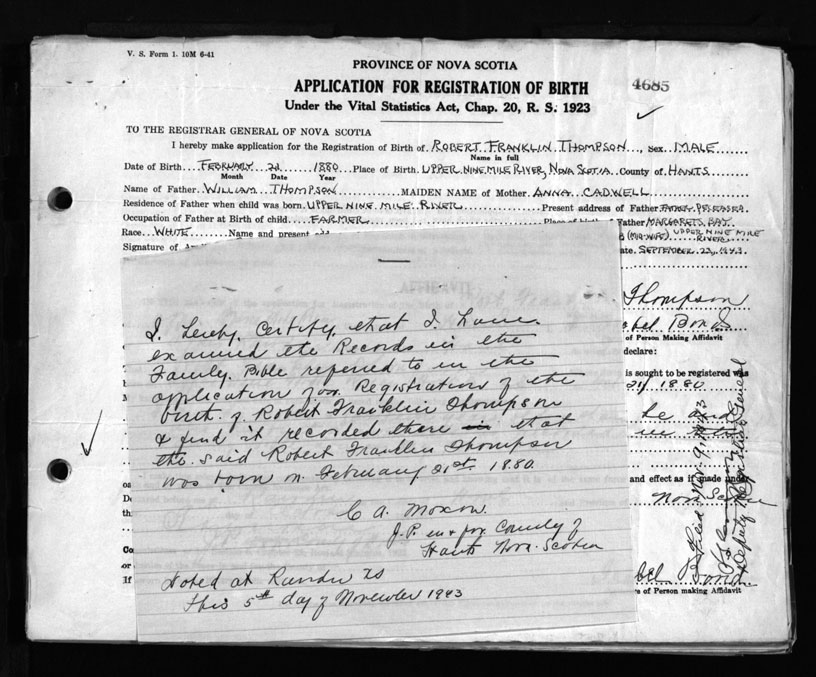 V. S. Form 1. 10M 6-41
PROVINCE OF NOVA SCOTIA
APPLICATION FOR REGISTRATION OF BIRTH
4685
Under the Vital Statistics Act, Chap. 20, R. S. 1923
TO THE REGISTRAR GENERAL OF NOVA SCOTIA
I hereby make application for the Registration of Birth of ROBERT FRANKLIN THOMPSON, Sex MALE
Name in full
Date of Birth FEBRUARY 21 1880 Place of Birth UPPER NINE MILE RIVER, NOVA SCOTIA County of HANTS
Month Date Year
Name of Father WILLIAM THOMPSON MAIDEN NAME of Mother ANNA CADWELL
Residence of Father when child was born UPPER NINE MILE RIVER Present address of Father DECEASED
Occupation of Father at Birth of child FARMER Father MARGARETS BAY
Race WHITE Name and present (MID-WIFE) UPPER NINE MILE RIVER
Signature of SEPTEMBER 23, 1943
Thompson
Bond
of Person Making Affidavit
declare:
is sought to be registered was
21 1880
he and
in the
and effect as if made under
Nova Scotia
Filed Nov. 9, 1943
Deputy Registrar General
Bond
of Person making Affidavit
I hereby certify that I have
examined the Records in the
Family Bible referred to in the
application for Registration of the
birth of Robert Franklin Thompson
& find it recorded there in that
the said Robert Franklin Thompson
was born on February 21st 1880
C A Moxon
J.P. in & for County of
Hants Nova-Scotia
Dated at NS
this 5th day of November 1943